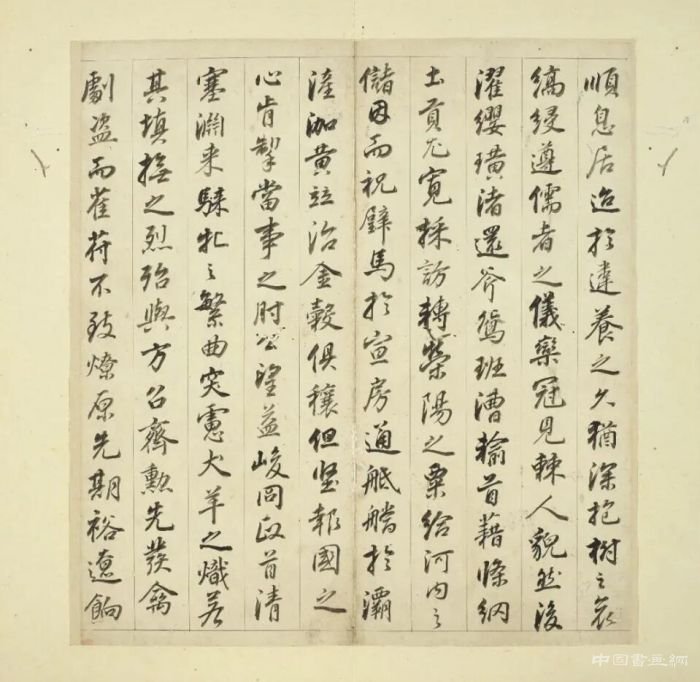 順息居迨於違養之久猶深抱樹之哀
縞綅遵儒者之儀欒冠見棘人貌然後
濯纓璜渚還鴛班漕輸首藉條納
土貢尤寬採訪轉滎陽之粟給河內之
儲因而祝璧馬於宣房通於灞
滻泇黃竝治金穀俱穰但堅報國之
心肯掣當事之肘公望益峻冏政首清
塞淵来騋牝之繁曲突慮犬羊之熾若
其填撫之烈殆與方召齊勲先發禽
劇盜而萑苻不致燎原先期裕遼餉
中国書画網